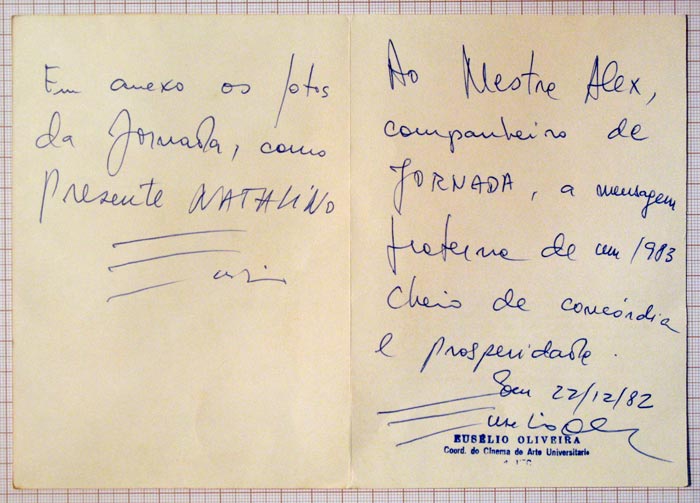 Em anexo os fotos
da Jornada, como
presente NATALINO
Ao Mestre Alex,
companheiro de
JORNADA, a mensagem
fraterna de um 1983
cheio de concórdia
e prosperidade.
22/12/82
EUSÉLIO OLIVEIRA
Coord. do Cinema de Arte Universitario